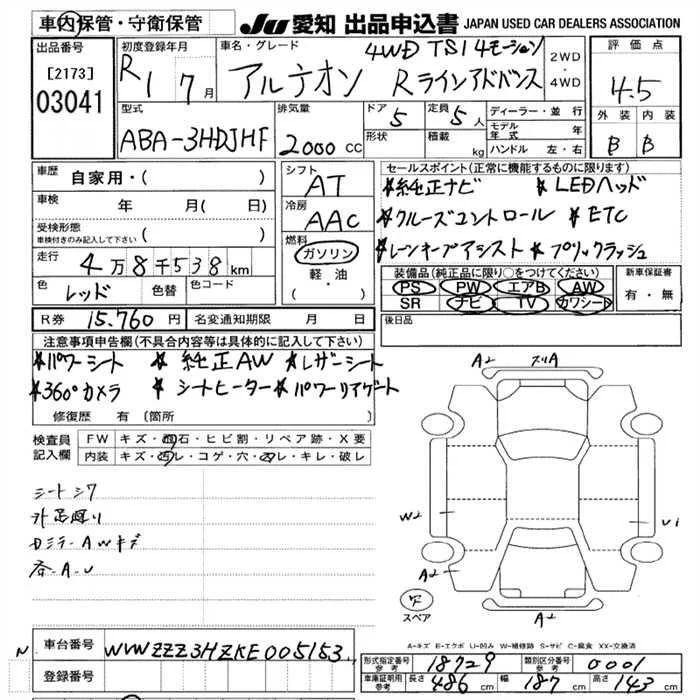 車内保管・守衛保管
JU 愛知 出品申込書 JAPAN USED CAR DEALERS ASSOCIATION
出品番号
[2173]
03041
初度登録年月
R1 7月
車名・グレード
4WD TSI 4モーション
アルテオン Rラインアドバンス
2WD
・
4WD
評価点
4.5
外装 内装
B B
型式
ABA-3HDJHF
排気量
2000 CC
ドア 5
形状
定員 5人
積載 kg
ディーラー・並行
モデル年式 年
ハンドル 左・右
車歴 自家用・( )
車検 年 月( 日)
受検形態
車検付きのみ記入して下さい ( )
走行 4万8千538km
色 レッド 色替 色コード
シフト AT
冷房 AAC
燃料
ガソリン
軽・油
( )
セールスポイント(正常に機能するものに限り)
☆純正ナビ ☆LEDヘッド
☆クルーズコントロール ☆ETC
☆レーンキープアシスト ☆プリクラッシュ
装備品(純正品に限り○をつけてください)
PS PW エアB AW
SR ナビ TV カワシート
新車保証書
有・無
R券 15,760円 名変通知期限 月 日
後日品
注意事項申告欄(不具合内容等は具体的に記入して下さい)
☆パワーシート ☆純正AW ☆レザーシート
☆360°カメラ ☆シートヒーター ☆パワーリアゲート
修復歴 有 (箇所
検査員
記入欄
FW キズ・飛石・ヒビ割・リペア跡・X要
内装 キズ・汚レ・コゲ・穴・凹レ・キレ・破レ
シートシワ
外足廻り
カミラーAWキズ
各-A-U
A2 スリA
W2
U1
A2
A2
スペア
A-キズ E-エクボ U-凹み W-補修跡 S-サビ C-腐食 XX-交換済
N
車台番号 WVWZZZ3HZKE005153
登録番号
形式指定番号参考 18729 類別区分番号参考 0001
車庫証明用参考 長さ 486cm 幅 187cm 高さ 143cm